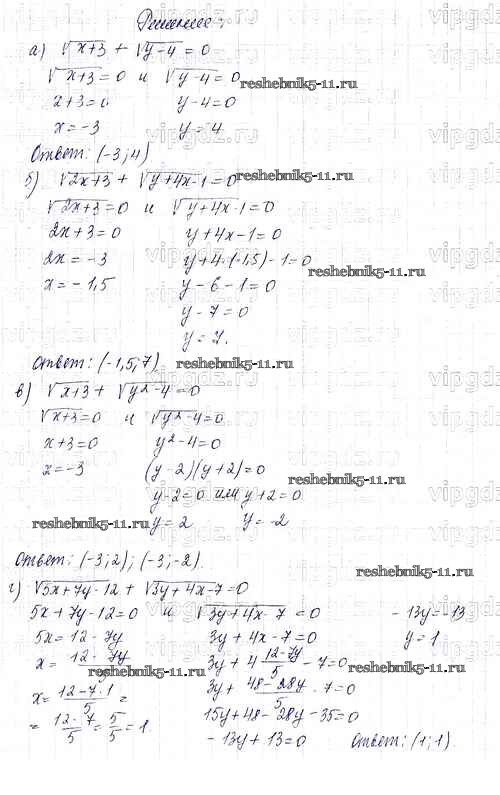 Решение:
а) √x+3 + √y-4 = 0
√x+3 = 0 и √y-4 = 0
reshebnik5-11.ru
x+3=0 y-4=0
x=-3 y=4
vipgdz.ru
Ответ: (-3;4)
б) √2x+3 + √y+4x-1=0
reshebnik5-11.ru
√2x+3=0 и √y+4x-1=0
2x+3=0 y+4x-1=0
2x=-3 y+4·(-1,5)-1=0
reshebnik5-11.ru
x=-1,5 y-6-1=0
y-7=0
y=7.
Ответ: (-1,5;7)
reshebnik5-11.ru
в) √x+3 + √y²-4=0
√x+3=0 и √y²-4=0
x+3=0 y²-4=0
x=-3 (y-2)(y+2)=0
reshebnik5-11.ru
y-2=0 или y+2=0
reshebnik5-11.ru
y=2 y=-2
Ответ: (-3;2); (-3;-2).
reshebnik5-11.ru
г) √5x+7y-12 + √3y+4x-7=0
5x+7y-12=0 и √3y+4x-7=0 -13y=-13
5x=12-7y 3y+4x-7=0 y=1
x=12-7y/5 3y+4 12-7y/5 -7=0
reshebnik5-11.ru
x=12-7·1/5= 3y+48-28y/5-7=0
=12-7/5=5/5=1. 15y+48-28y-35=0
-13y+13=0 Ответ: (1;1).